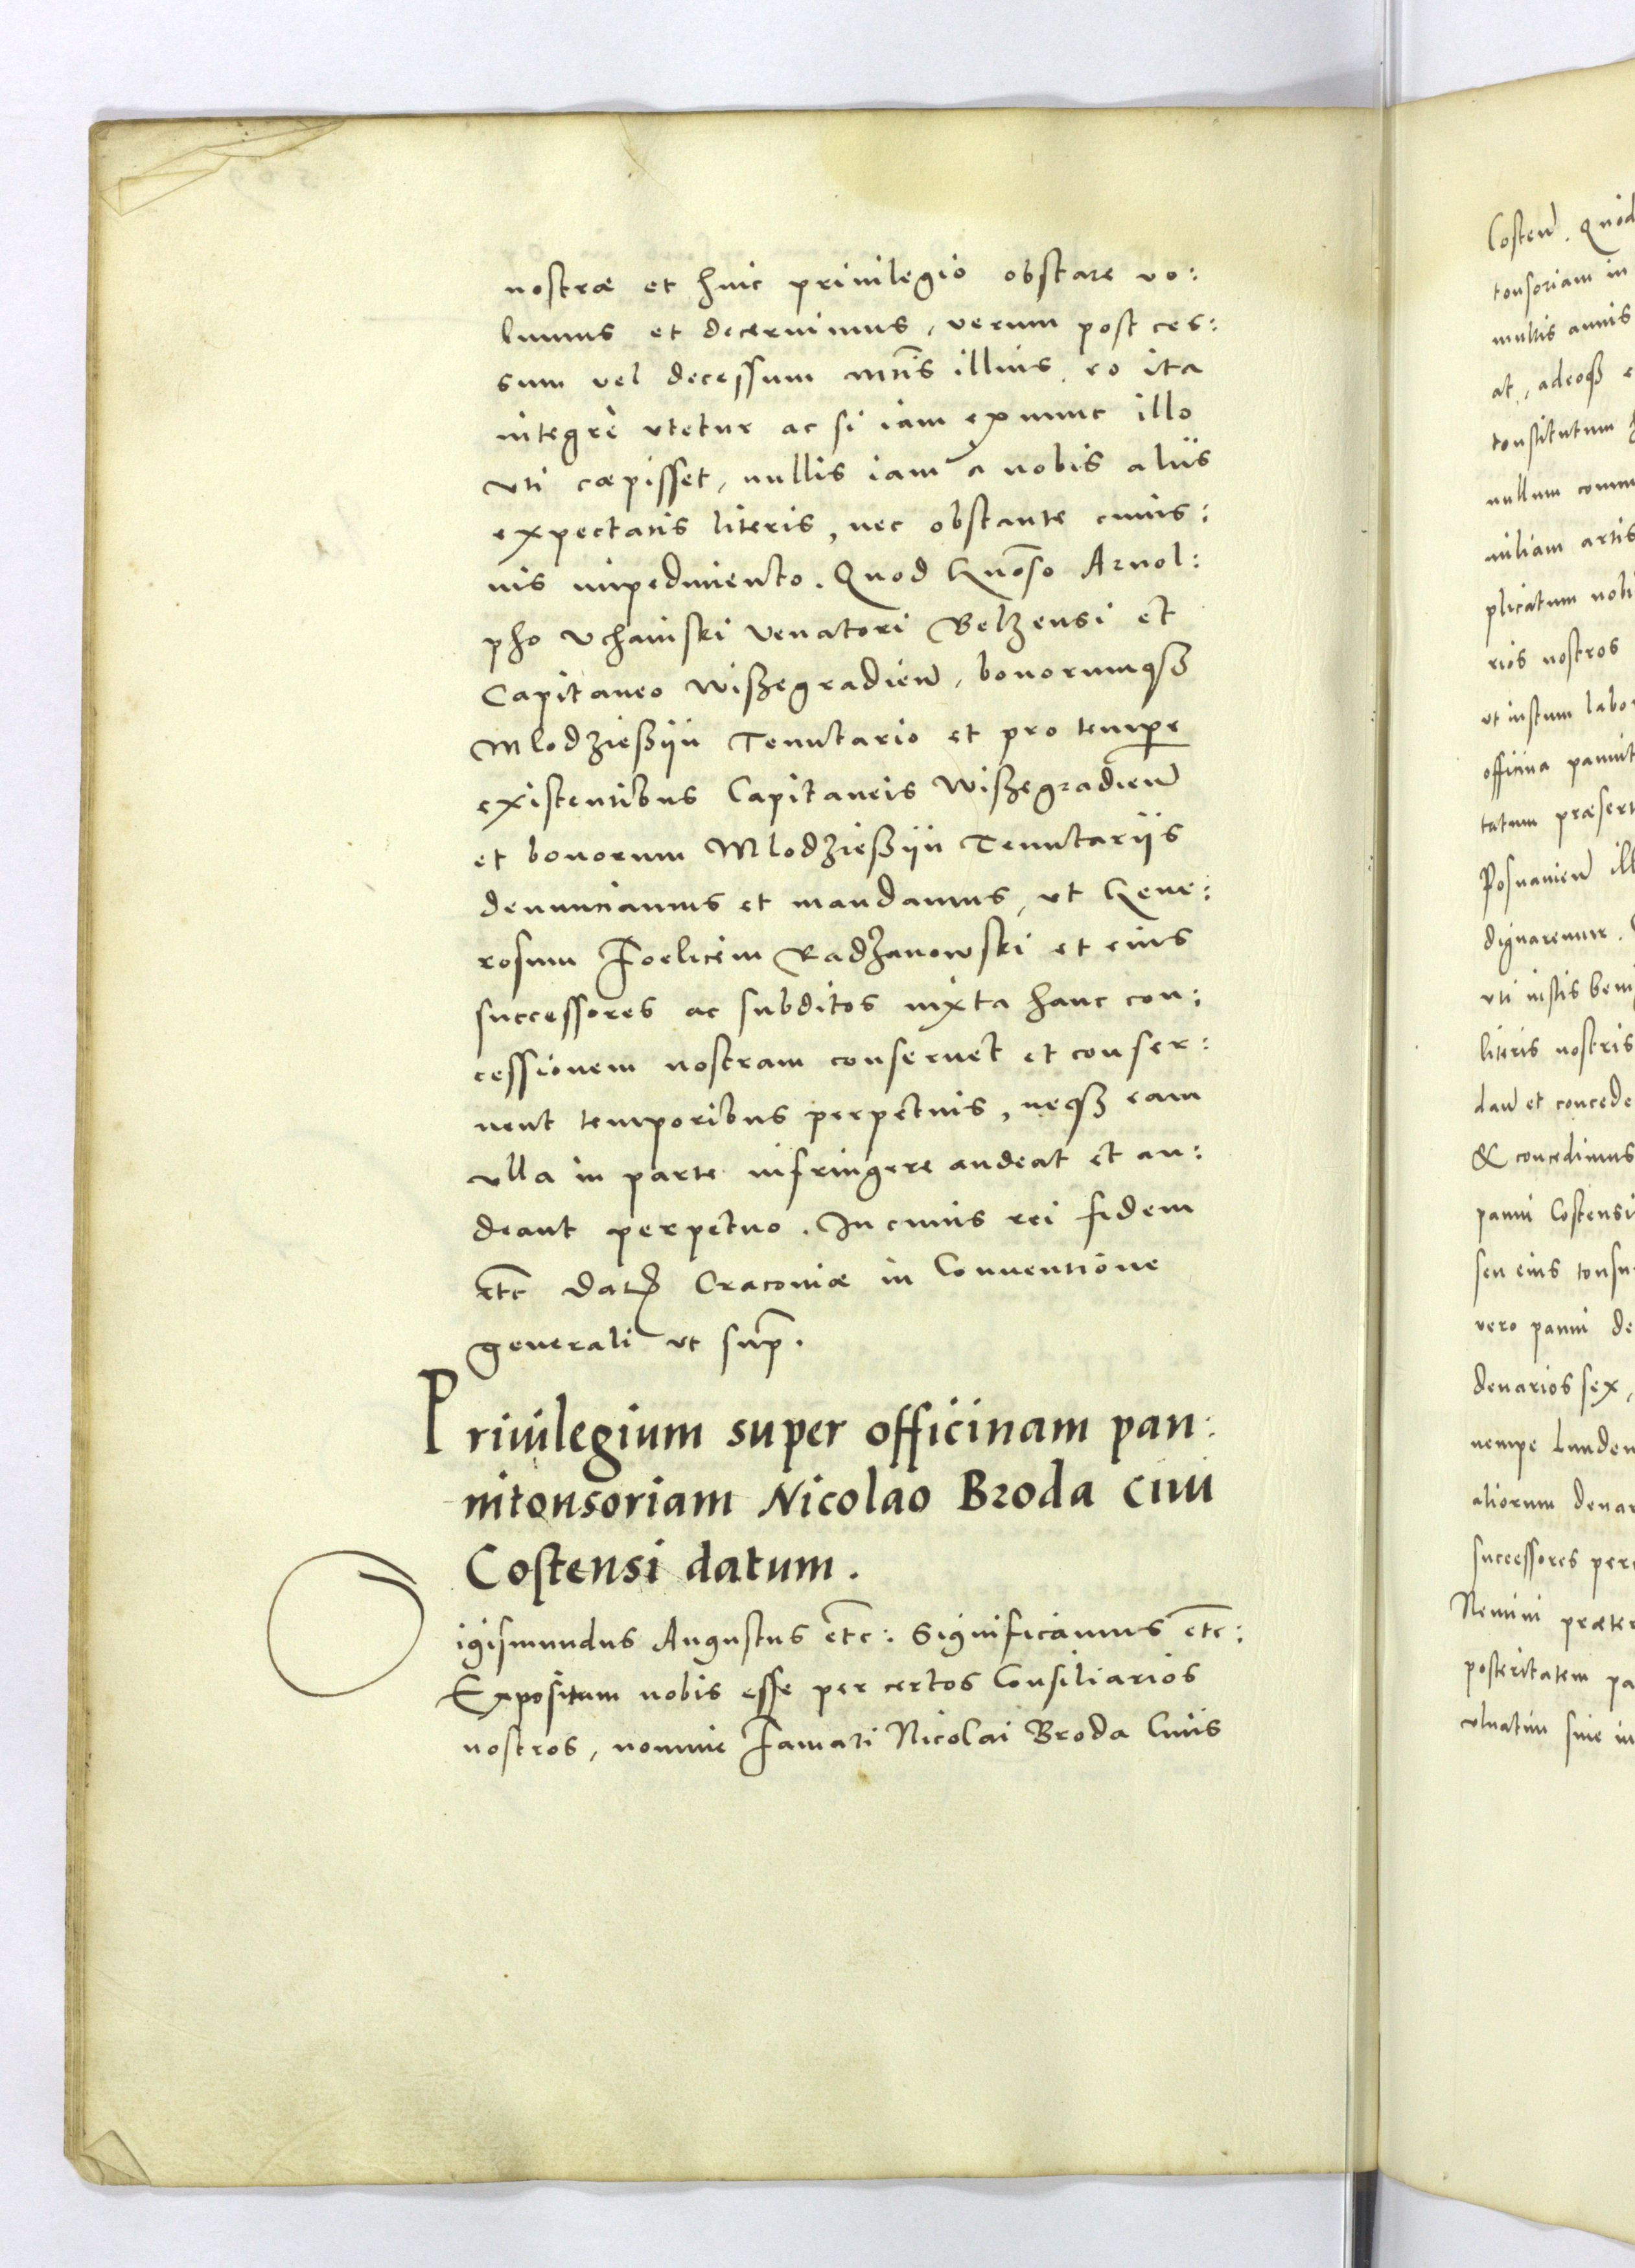 nostræ et huic priuilegio obstare vo:
lumus et decernimus, verum post ces:
sum vel decessum mr̃is illius, eo ita
integrè vtetur ac si iam ex nunc illo
vti cæpisset, nullis iam à nobis aliis
expectatis literis, nec obstante cuius:
uis impedimento. Quod Gñoso Arnol:
pho Vchainski Venatori Belzensi et
Capitaneo Wißegradień, bonorumqȝ
Mlodzießijn Tenutario et pro temp̱e
existentibus Capitaneis Wißegradień
et bonorum Mlodzießijn Tenutariis
denunciamus et mandamus, vt Gene:
rosum Foelicem Radzanowski et eius
successores ac subditos iuxta hanc con:
cessionem nostram conseruet et conser:
uent temporibus perpetuis, neqȝ eam
vlla in parte infringere audeat et au:
deant perpetuo. In cuius rei fidem
etc̃ Dat̃ Cracouiæ in Conuentione
generali vt sup̃.
Priuilegium super officinam pan:
nitonsoriam Nicolao Broda Ciui
Costensi datum.
igismundus Augustus etc̃: Significamus etc̃:
Expositum nobis esse per certos Consiliarios
nostros, nomine Famati Nicolai Broda Ciuis
Costeń. Quod
tonsoriam in
multis annis
at, adeoqȝ e
constitutum
nullum comm
miliam artis
plicatum nobi
rios nostros
vt iustum labor
officina pannit
tatum præsert
Posnanień ill
dignaremur.
vti iustis beni
literis nostris
dań et concede
& concedimus
panni Costensi
seu eius tonsu
vero panni de
denarios sex,
nempe Lunden
aliorum denar
successores per
Nemini præter
posteritatem pa
vluatim siue in